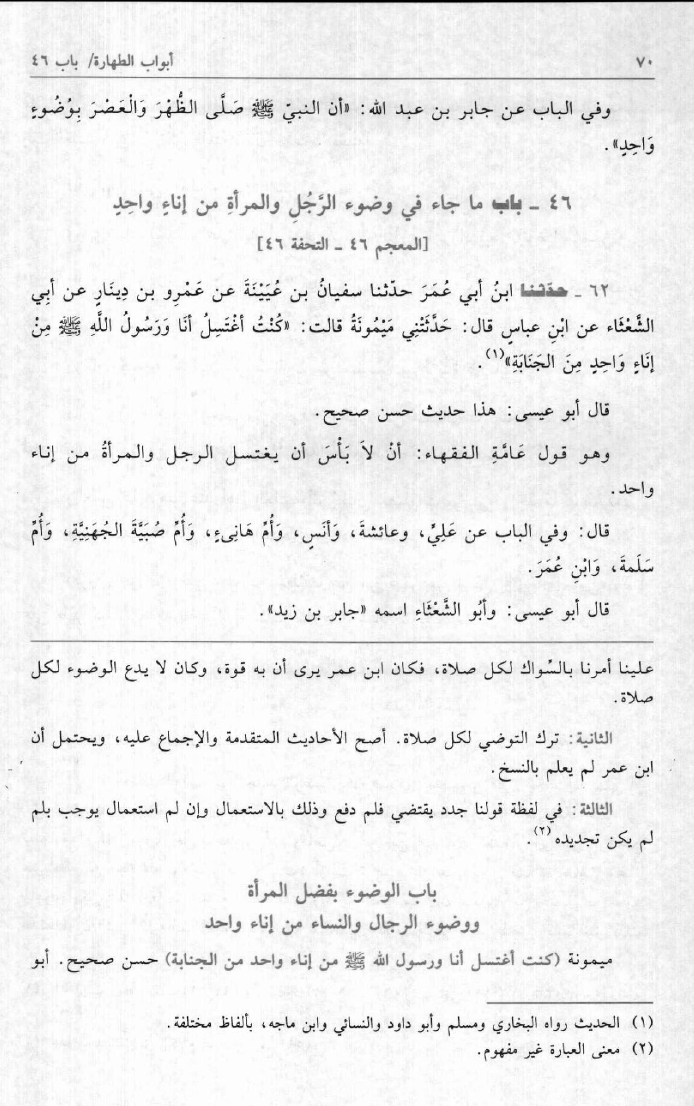 ٧٠ أبواب الطهارة/ باب ٤٦
وفي الباب عن جابر بن عبد الله: «أن النبيّ ﷺ صَلَّى الظُّهْرَ وَالْعَصْرَ بِوُضُوءٍ
وَاحِدٍ».
٤٦ ـ باب ما جاء في وضوء الرَّجُلِ والمرأةِ من إناءٍ واحِدٍ
[المعجم ٤٦ ـ التحفة ٤٦]
٦٢ ـ حدّثنا ابنُ أبي عُمَرَ حدّثنا سفيانُ بن عُيَيْنَةَ عن عَمْرِو بن دِينَارٍ عن أبي
الشَّعْثَاء عن ابْنِ عباسٍ قال: حَدَّثَتْنِي مَيْمُونَةُ قالت: «كُنْتُ أغْتَسِلُ أنَا وَرَسُولُ اللَّهِ ﷺ مِنْ
إنَاءٍ وَاحِدٍ مِنَ الجَنَابَةِ»(١).
قال أبو عيسى: هذا حديث حسن صحيح.
وهو قول عَامَّةِ الفقهاء: أنْ لاَ بَأْسَ أن يغتسل الرجل والمرأةُ من إناء
واحد.
قال: وفي الباب عن عَلِيٍّ، وعائشةَ، وَأنَسٍ، وَأُمِّ هَانِىءٍ، وَأُمِّ صُبَيَّةَ الجُهَنِيَّةِ، وَأُمِّ
سَلَمةَ، وَابْنِ عُمَرَ.
قال أبو عيسى: وأبُو الشَّعْثَاءِ اسمه «جابر بن زيد».
علينا أمرنا بالسِّواك لكل صلاة، فكان ابن عمر يرى أن به قوة، وكان لا يدع الوضوء لكل
صلاة.
الثانية: ترك التوضي لكل صلاة. أصح الأحاديث المتقدمة والإجماع عليه، ويحتمل أن
ابن عمر لم يعلم بالنسخ.
الثالثة: في لفظة قولنا جدد يقتضي فلم دفع وذلك بالاستعمال وإن لم استعمال يوجب بلم
لم يكن تجديده(٢).
باب الوضوء بفضل المرأة
ووضوء الرجال والنساء من إناء واحد
ميمونة (كنت أغتسل أنا ورسول الله ﷺ من إناء واحد من الجنابة) حسن صحيح. أبو
(١) الحديث رواه البخاري ومسلم وأبو داود والنسائي وابن ماجه، بألفاظ مختلفة.
(٢) معنى العبارة غير مفهوم.